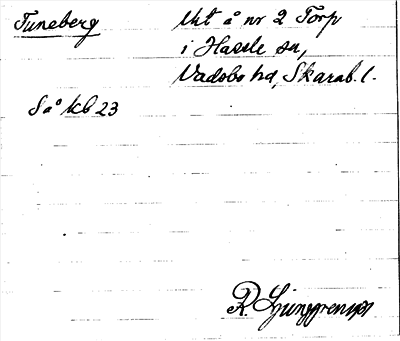 Tuneberg
Utt å nr 2 Torp
i Hassle sn,
Vadsbo hd, Skarab. l.
Så Kb 23
R. Ljunggren